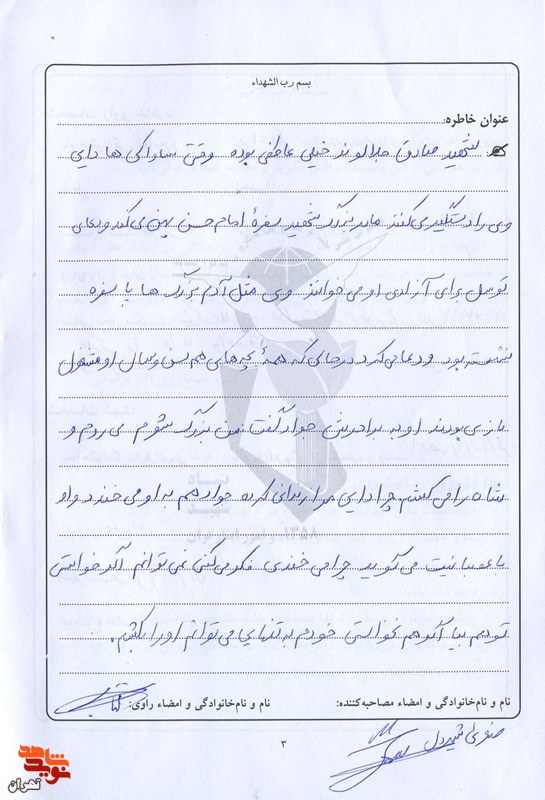 بسم رب الشهداء
عنوان خاطره:
شهید صادق جلالوند خیلی عاطفی بوده وقتی ساواکی ها دایی
وی را دستگیر می کنند مادر بزرگ شهید سفرهٔ امام حسن پهن می کند و دعای
توسل برای آزادی او می خوانند وی مثل آدم بزرگ ها پا سفره
نشسته بود و دعا می کرد در حالی که همهٔ بچه های هم سن و سال او مشغول
بازی بودند او به برادرش جواد گفت من بزرگ شوم می روم و
شاه را می کشم چرا دایی مرا زندانی کرده جواد هم به او می خندد و او
با عصبانیت می گوید چرا می خندی فکر می کنی نمی توانم اگر خواستی
تو هم بیا اگر هم نخواستی خودم به تنهایی می توانم او را بکشم.
نام و نام‌خانوادگی و امضاء مصاحبه‌کننده:
نام و نام‌خانوادگی و امضاء راوی:
۳
شاهد
نوید
تهران
۱۳۵۸